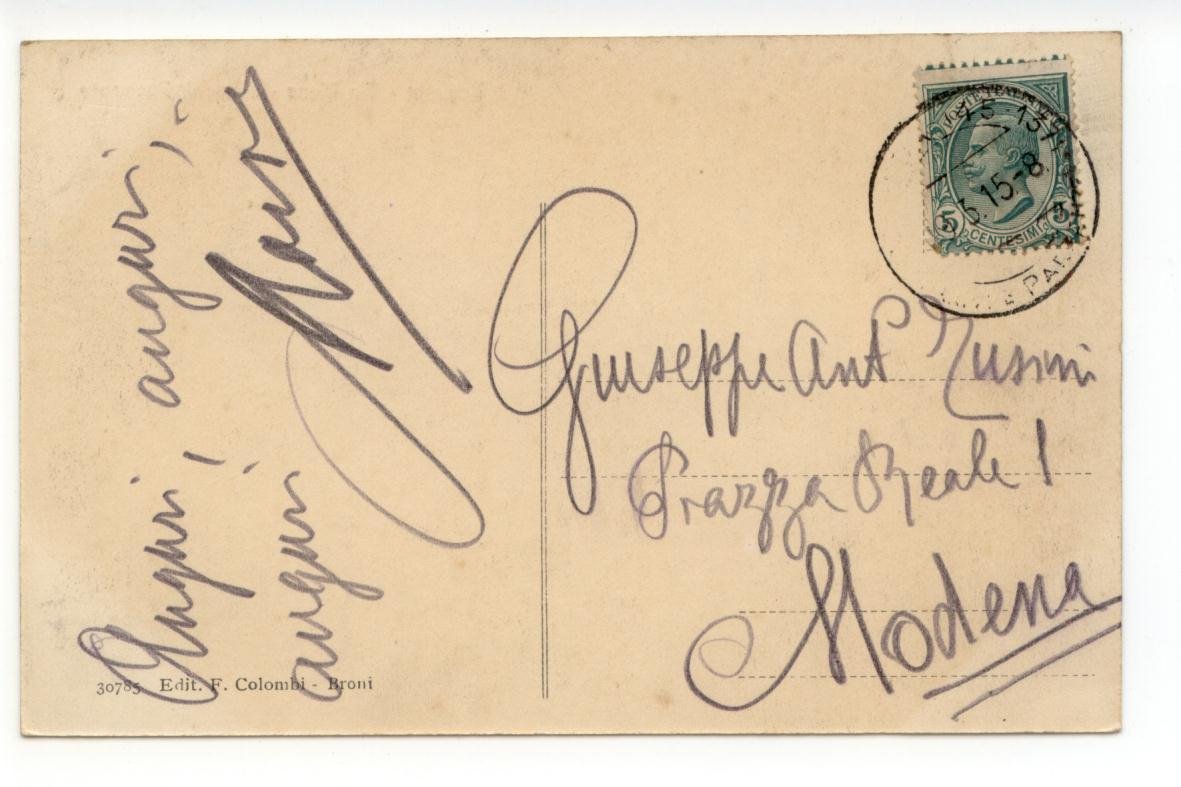 Auguri, auguri,
auguri
30785 Edit. F. Colombi - Broni
POSTE ITALIANE
5 CENTESIMI 5
15-8
Giuseppe Ant
Piazza Reale 1
Modena